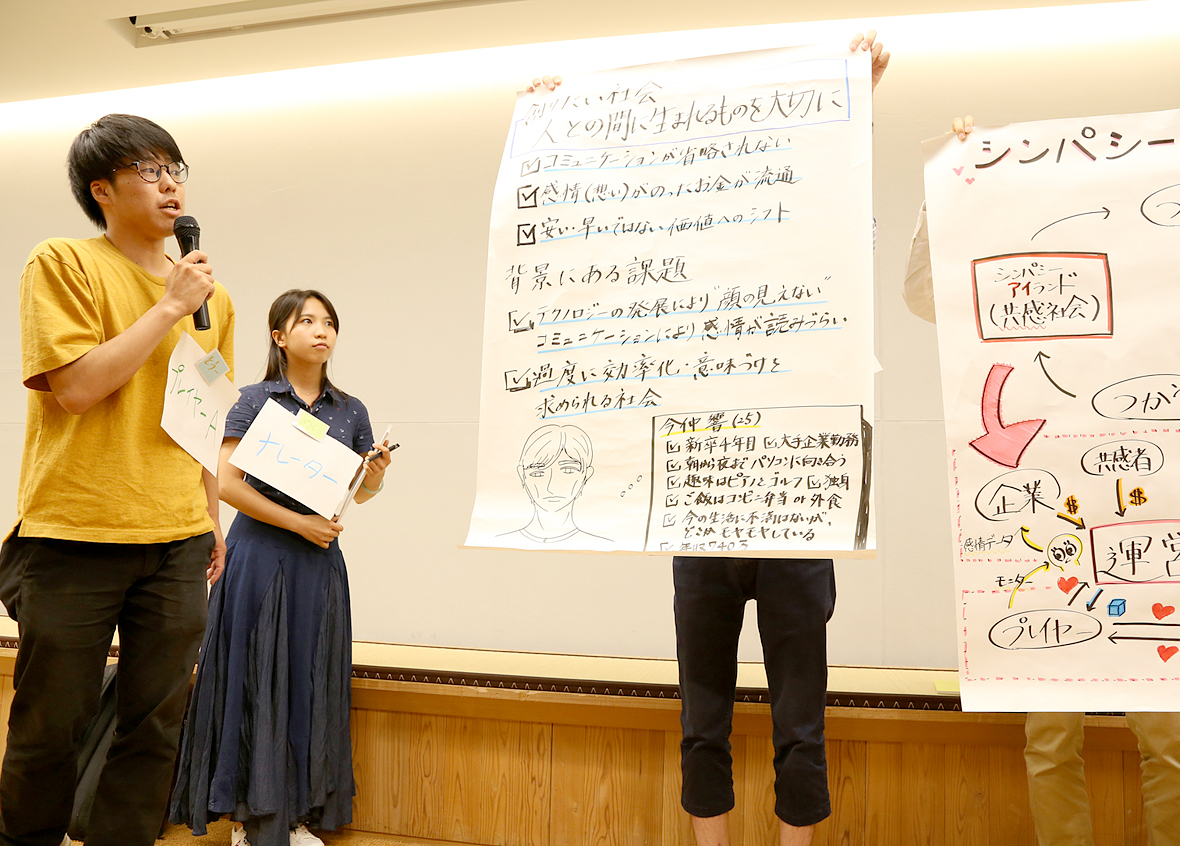 プレーヤーA
ナレーター
創りたい社会
人との間に生まれるものを大切に
コミュニケーションが省略されない
感情(想い)がのったお金が流通
安い・早いではない価値へのシフト
背景にある課題
テクノロジーの発展により"顔の見えない"
コミュニケーションにより感情が読みづらい
過度に効率化・意味づけを
求められる社会
今仲 響(25)
新卒4年目 大手企業勤務
朝から夜までパソコンに向き合う
趣味はピアノとゴルフ 独身
ご飯はコンビニ弁当 or 外食
今の生活に不満はないが、
どこかモヤモヤしている
シンパシー
シンパシー
アイランド
(共感社会)
つか
共感者
企業
$
$
感情データ
運営
モニター
プレイヤー